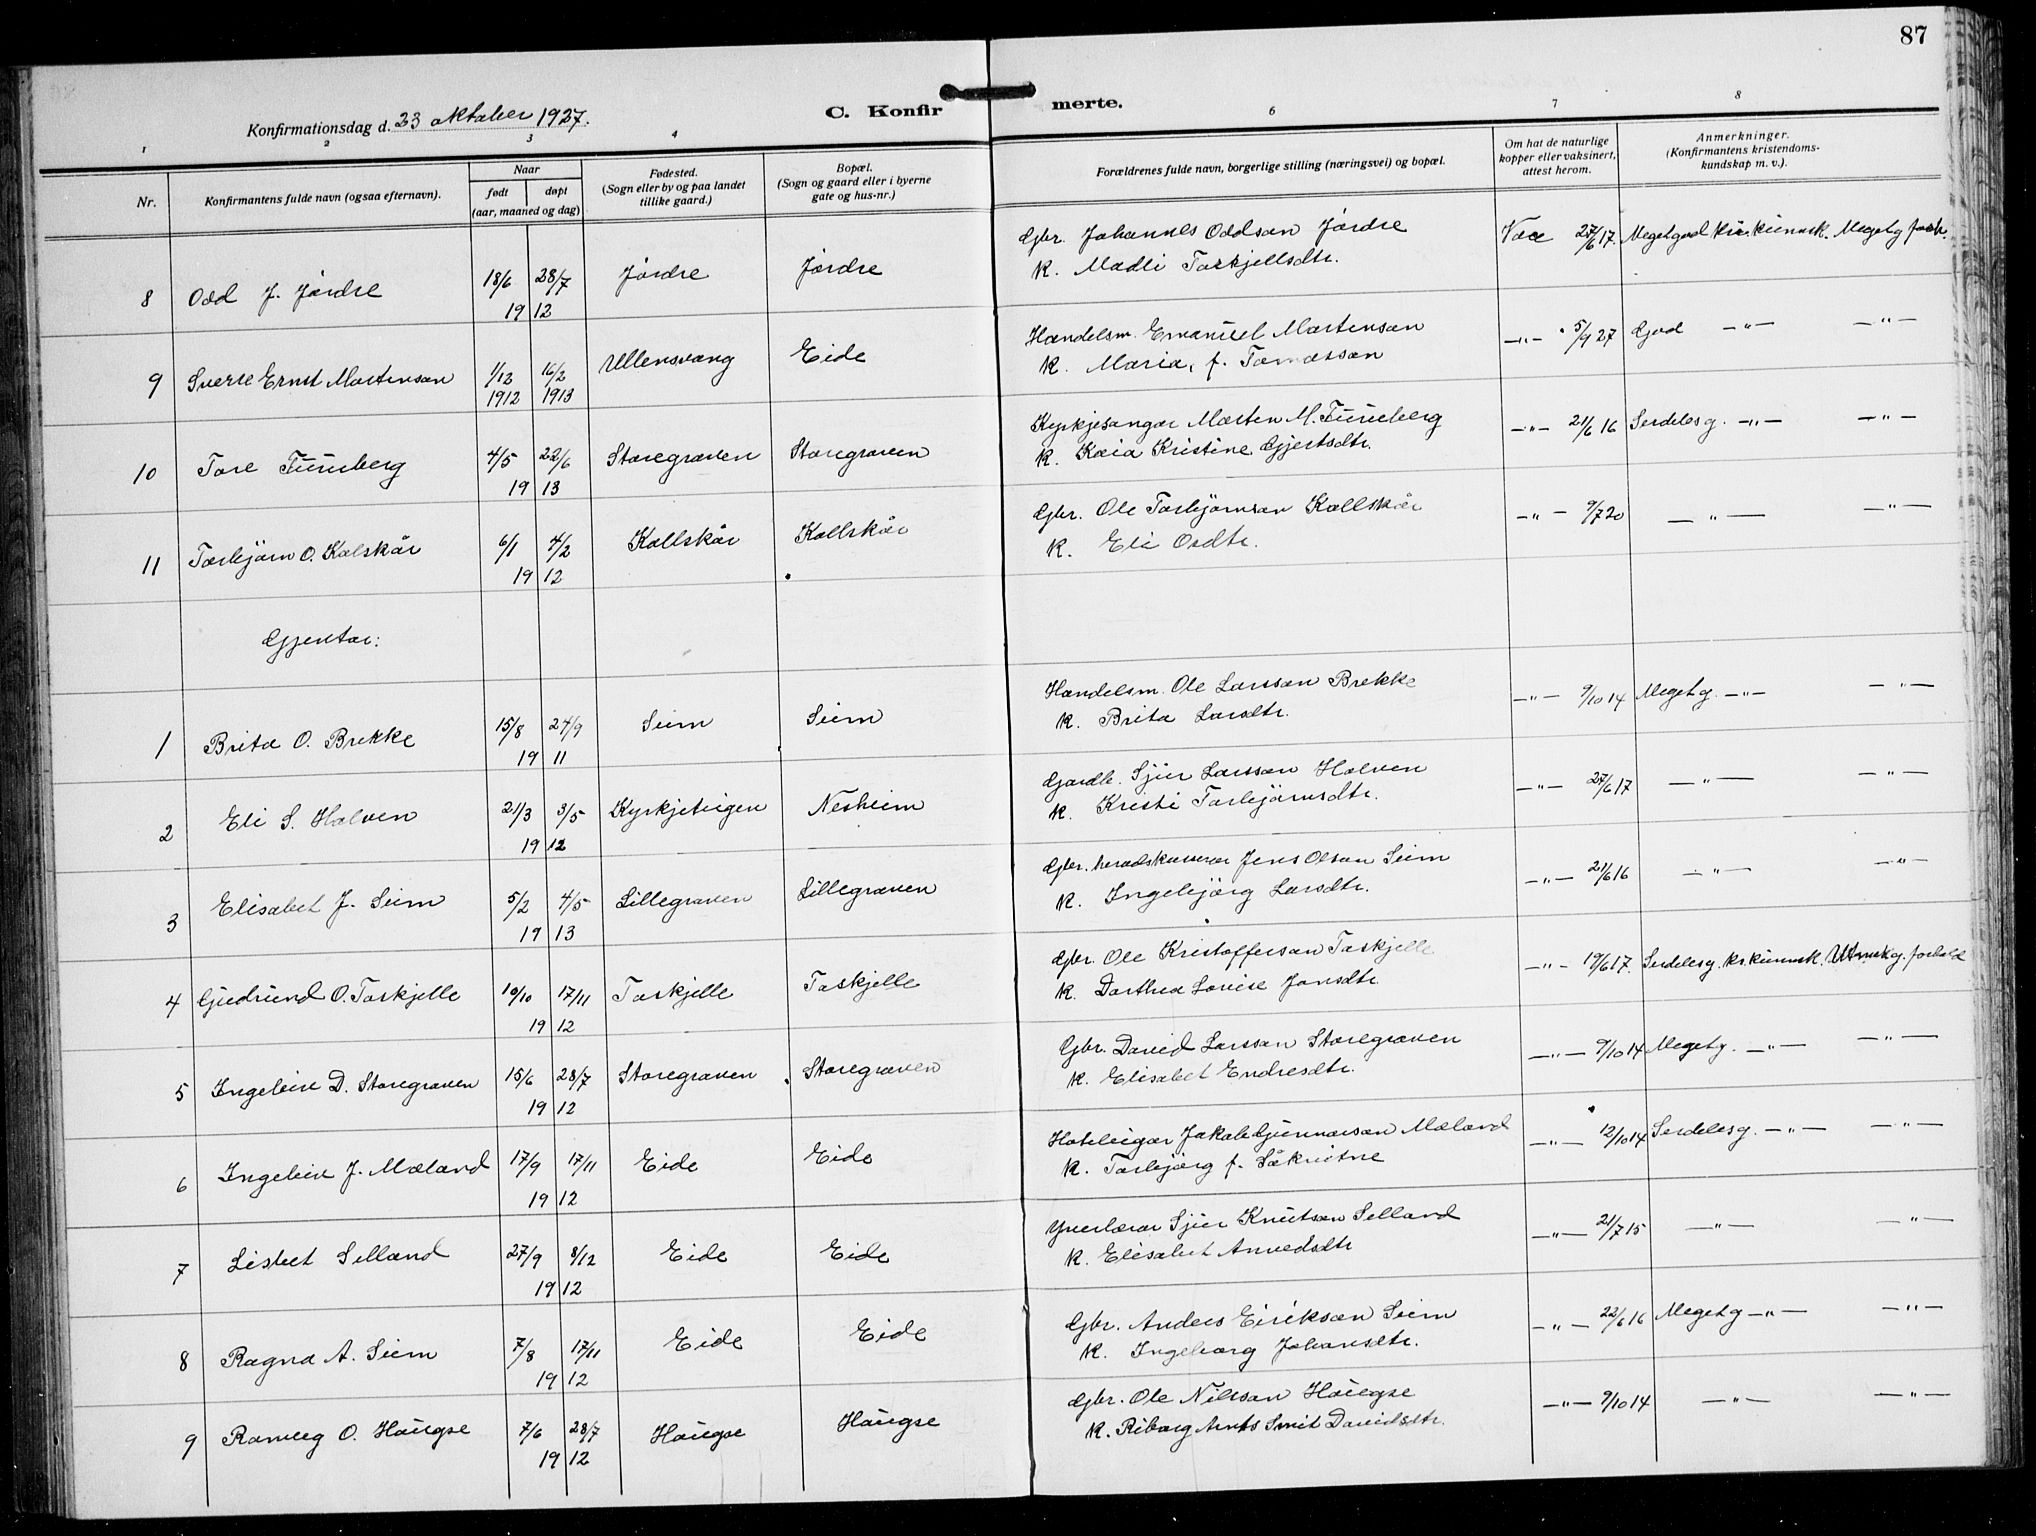 87
Konfirmationsdag d. 23 oktober 1927.
C. Konfirmerte.
1 2 3 4 6 7 8
Nr. Konfirmantens fulde navn (ogsaa efternavn). Naar født døpt (aar, maaned og dag) Fødested. (Sogn eller by og paa landet tillike gaard.) Bopæl. (Sogn og gaard eller i byerne gate og hus-nr.) Forældrenes fulde navn, borgerlige stilling (næringsvei) og bopæl. Om hat de naturlige kopper eller vaksinert, attest herom. Anmerkninger. (Konfirmantens kristendomskundskap m. v.).
8 Odd J. Jördre 18/6 28/7 1912 Jördre Jördre Gbr. Johannes Oddson Jördre
k. Madli Torkjellsdtr. Vac 27/6 17. Megetgod kr. kunnsk. Meget g. forh.
9 Sverre Ernst Mortenson 1/12 1912 16/2 1913 Ullensvang Eide Handelsm. Emanuel Mortenson
k. Maria, f. Tomasson —"— 5/9 27 God —"— —"—
10 Tore Fureberg 4/5 22/6 1913 Storegraven Storegraven Kyrkjesangar Morten M. Fureberg
k. Kaia Kristine Gjertsdtr. —"— 21/6 16 Serdeles g. —"— —"—
11 Torbjörn O. Kolskår 6/1 4/2 1912 Kollskår Kollskår Gbr. Ole Torbjörnson Kollskår
k. Eli Ordtr. —"— 9/7 20 —"— —"—
Gjentor:
1 Brita O. Brekke 15/8 24/9 1911 Seim Seim Handelsm. Ole Larsson Brekke
k. Brita Larsdtr. —"— 9/10 14 Meget g. —"— —"—
2 Eli S. Halven 21/3 3/5 1912 Kyrkjeteigen Nesheim Gardb. Sjur Larsson Halven
k. Kristi Torbjörnsdtr. —"— 27/6 17 —"— —"—
3 Elisabet J. Seim 5/2 4/5 1913 Lillegraven Lillegraven Gbr. heradskasserar Jens Olson Seim
k. Ingebjörg Larsdtr. —"— 21/6 16 —"— —"—
4 Gudrund O. Torkjelle 10/10 17/11 1912 Torkjelle Torkjelle Gbr. Ole Kristofferson Torkjelle
k. Dorthea Lovise Jonsdtr. —"— 19/6 17. Serdeles g. kr. kunnsk. Utmerk g. forhold
5 Ingeleiv D. Storegraven 15/6 28/7 1912 Storegraven Storegraven Gbr. David Larsson Storegraven
k. Elisabet Endresdtr. —"— 9/10 14 Meget g. —"— —"—
6 Ingeleiv J. Mæland 17/9 17/11 1912 Eide Eide Hoteleigar Jakob Gunnarson Mæland
k. Torbjörg f. Såkvitne —"— 12/10 14 Serdeles g. —"— —"—
7 Lisbet Selland 27/9 8/12 1912 Eide Eide Yverlærar Sjur Knutson Selland
k. Elisabet Arnvedsdtr —"— 21/7 15 —"— —"—
8 Ragna A. Seim 7/8 17/11 1912 Eide Eide Gbr. Anders Eirikson Seim
k. Ingeborg Johansdtr. —"— 22/6 16 Meget g —"— —"—
9 Ranveig O. Haugse 7/6 28/7 1912 Haugse Haugse Gbr. Ole Nilsson Haugse
k. Riborg Arnts Smit Davidsdtr. —"— 9/10 14 —"— —"—